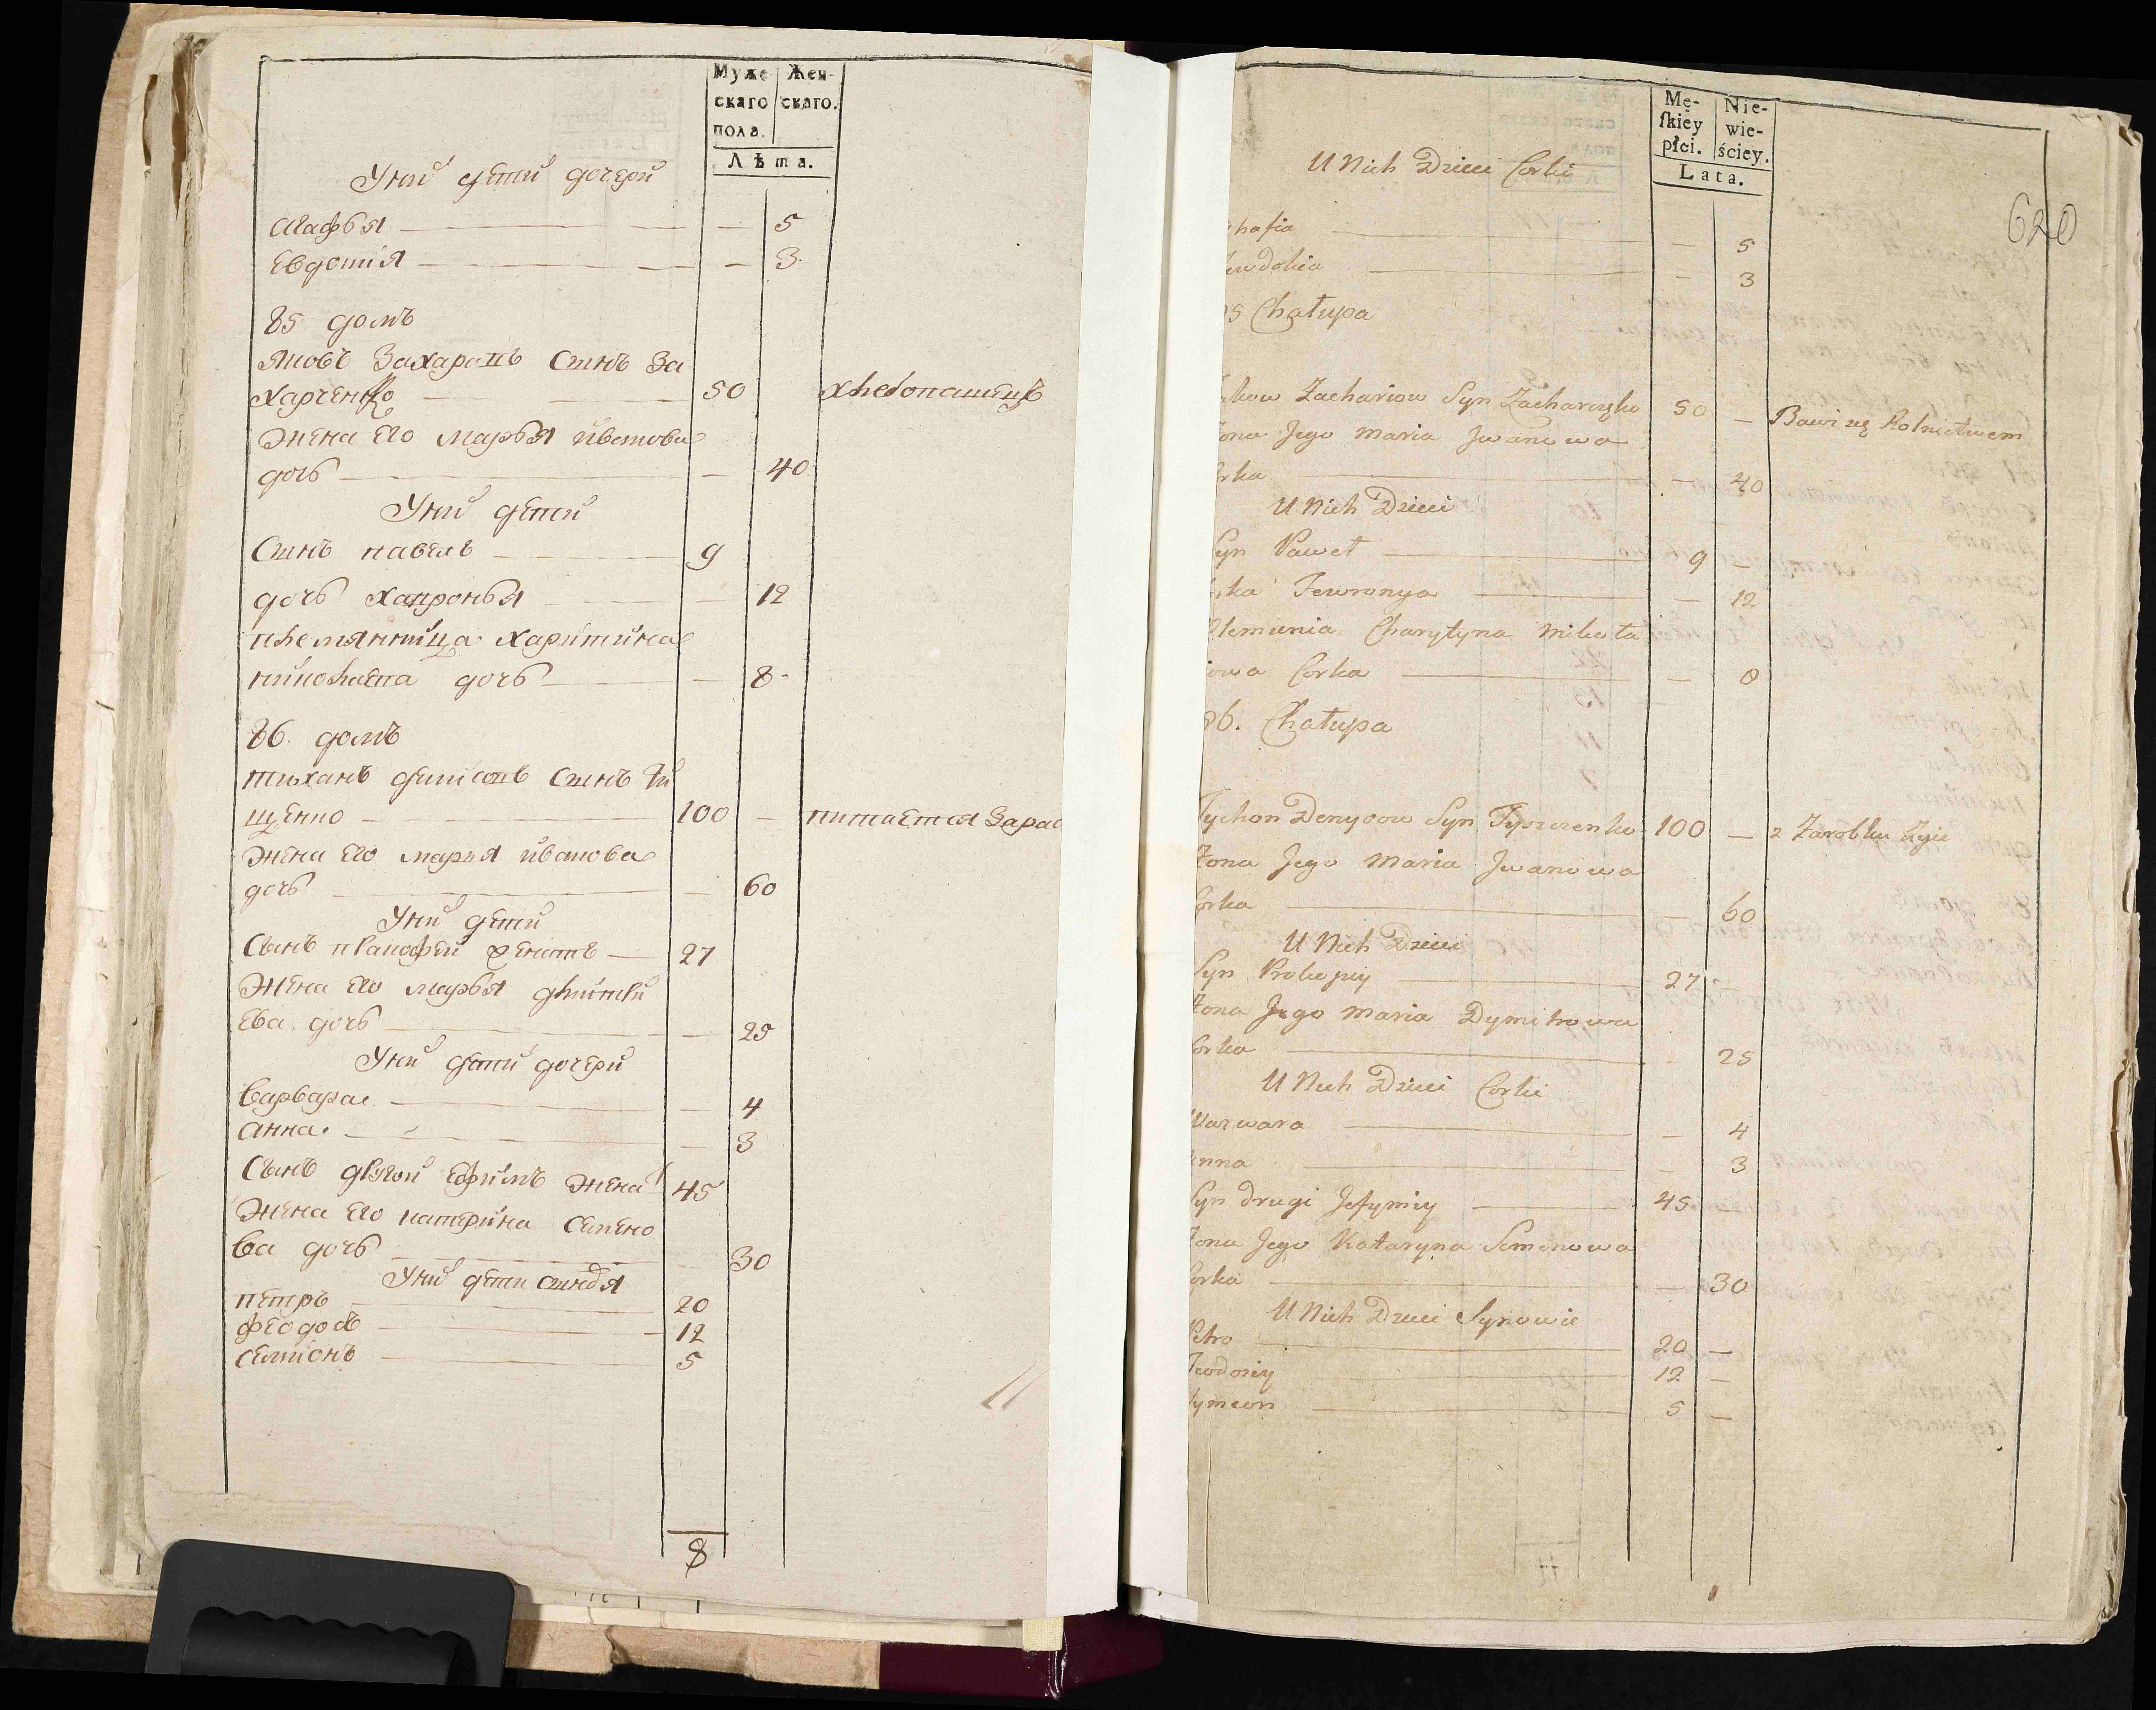 Муже- Жен-
скаго скаго.
пола.
Лѣта.
Уних детей дочерей
Агафья — — 5
Евдокия — — 3
85 домъ
Яковъ Захаровъ Сынъ За
харченко — 50 хлебопашецъ
Жена его марья иванова
дочь — — 40
Уних детей
Сынъ павелъ — 9
дочь хавронья — — 12
племянница харитина
николаева дочь — — 8
86. домъ
тиханъ денисовъ Сынъ Ти
щенко — 100 — питается Зараб
Жена его марья иванова
дочь — — 60
Уних детей
Сынъ — 27
Жена его марья дмитри
ева дочь — — 25
Уних детей дочерей
варвара — — 4
анна — — 3
Сынъ другой Ефимъ 45
Жена его катерина Семено
ва дочь — — 30
Уних дети сыновья
петръ — 20
феодосъ — 12
семионъ — 5
8
620
Mę- Nie-
ſkiey wie-
płci. ściey.
Lata.
U Nich Dzieci Corki
hafia — — 5
ewdokia — — 3
5 Chałupa
akow Zachariow Syn Zacharczęko 50 — Bawi się Rolnictwem
ona Jego Maria Jwanowa
orka — — 40
U Nich Dzieci
Syn Paweł — 9 —
rka Fewronya — — 12
Plemienia Charytyna Mikoła
iowa Corka — — 8
86. Chałupa
Tychon Denysow Syn Tyszczenko 100 — z Zarobku żyie
Zona Jego Maria Jwanowa
Corka — — 60
U Nich Dzieci
Syn Prokopiy — 27 —
Zona Jego Maria Dymitrowa
Corka — — 25
U Nich Dzieci Corki
Warwara — — 4
anna — — 3
Syn drugi Jefymiy — 45 —
Zona Jego Kataryna Semenowa
Corka — — 30
U Nich Dzieci Synowie
Petro — 20 —
Teodosiy — 12 —
Symeon — 5 —